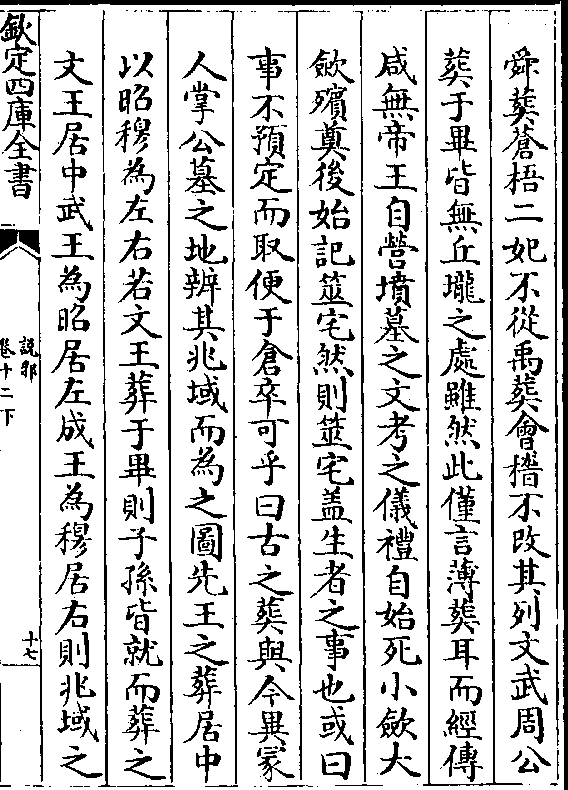 舜葬蒼梧二妃不從禹葬會稽不改其列文武周公
葬于畢皆無丘壠之處雖然此僅言薄葬耳而經傳
咸無帝王自營墳墓之文考之儀禮自始死小斂大
斂殯奠後始記筮宅然則筮宅盖生者之事也或曰
事不預定而取便于倉卒可乎曰古之葬與今異冢
人掌公墓之地辨其兆域而為之圖先王之葬居中
以昭穆為左右若文王葬于畢則子孫皆就而葬之
文王居中武王為昭居左成王為穆居右則兆域之
欽定四庫全書
說郛
卷十二下
十七